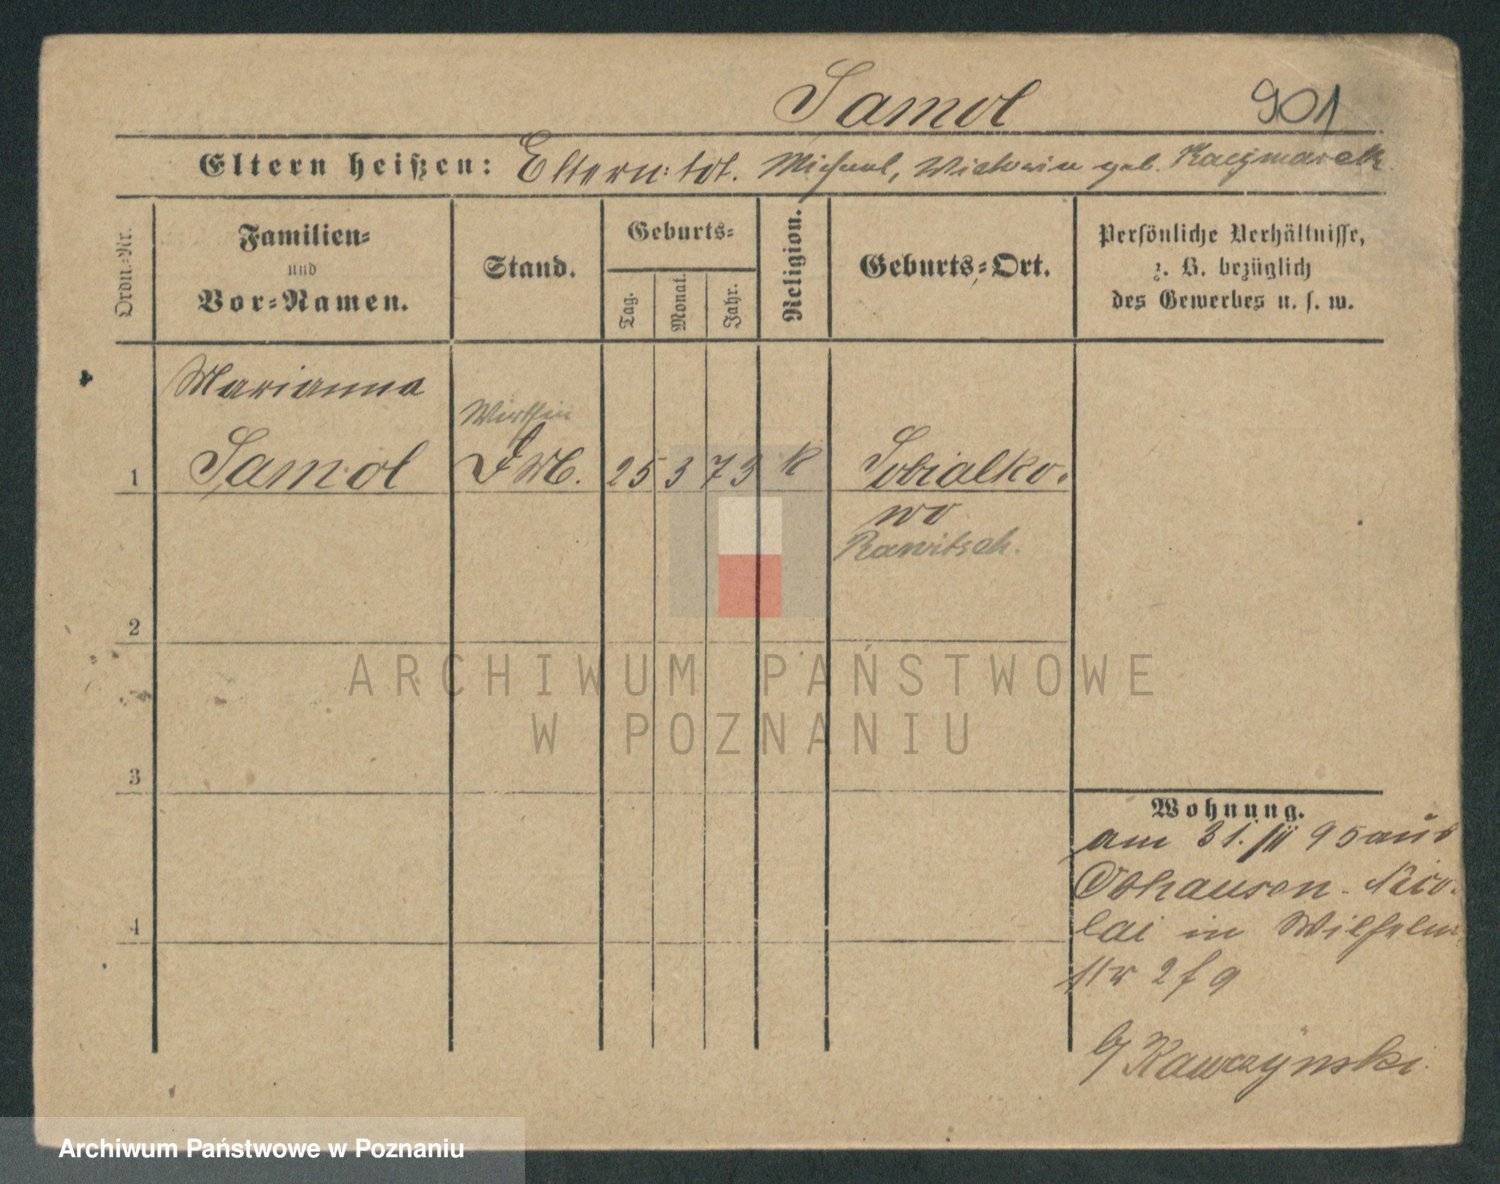 Samol 901
Eltern heißen: Eltern: tot. Michael, Wictoria geb. Kaczmarek.
Ordn.-Nr.
Familien-
und
Vor-Namen.
Stand.
Geburts-
Tag.
Monat.
Jahr.
Religion.
Geburts-Ort.
Persönliche Verhältnisse,
z. B. bezüglich
des Gewerbes u. s. w.
Marianna
Wirthin
1 Samol D M. 25 3 73 K Sobialko-
wo
Rawitsch.
2
3
4
ARCHIWUM PAŃSTWOWE
W POZNANIU
Wohnung.
am 31. 95 aus
Nico-
lai in Wilhelm
Nr 2
Kawczynski
Archiwum Państwowe w Poznaniu